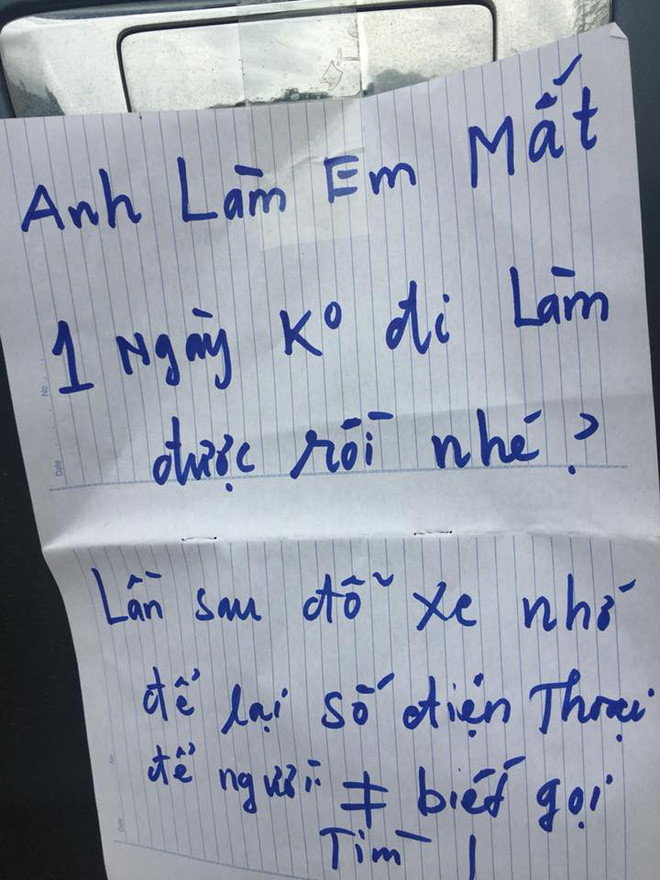 Anh Làm Em Mất
1 Ngày Ko đi Làm
được rồi nhé?
Lần sau đỗ xe nhớ
để lại số điện Thoại
để người ≠ biết gọi
Tìm !
No
Date
Date